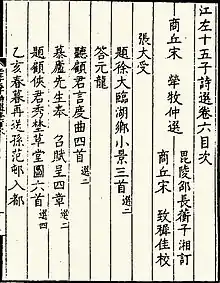 江左十五子詩選卷六目次
商丘宋 犖牧仲選
毘陵邵長蘅子湘訂
商丘宋 致穉佳校
張大受
題徐大臨湖鄉小景三首選二
答元龍
聽顧君言度曲四首 選二
慕廬先生奉 召賦呈四章選二
題顧俠君秀埜草堂圖六首選四
乙亥春暮再送孫范邨入都